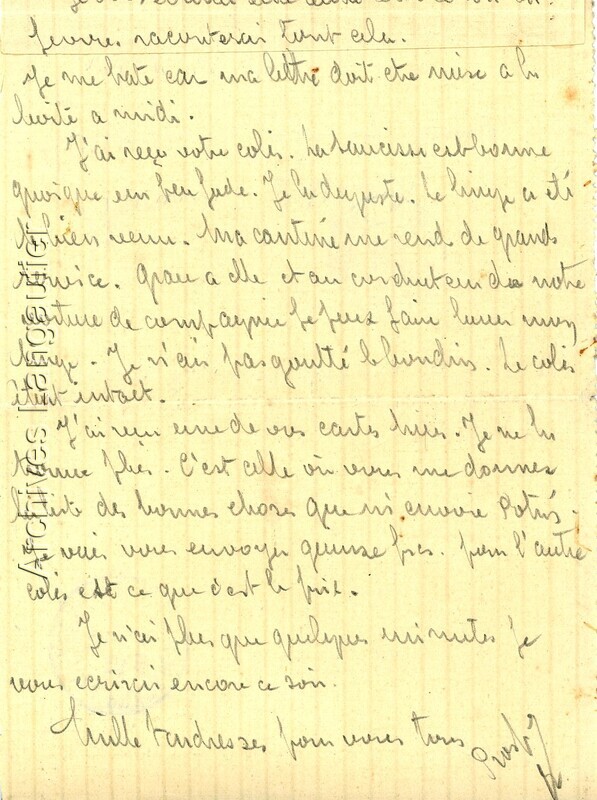 raconterai tout cela.
Je me hate car ma lettre doit etre mise a la
boite a midi.
J'ai reçu votre colis. La saucisse est bonne
quoique un peu fade. Je la deguste. Le linge a eté
bien venu. Ma cantine me rend de grands
service. Grace a elle et au conducteur de notre
voiture de compagnie je peux faire laver mon
linge. Je n'ai pas goutté le boudin. Le colis
était intact.
J'ai reçu une de vos cartes lues. Je ne la
trouve plus. C'est celle où vous me donnez
la liste des bonnes choses que m'envoie
Je vais vous envoyer quinze frs. pour l'autre
colis est ce que c'est le prix.
Je n'ai plus que quelques minutes je
vous ecrirai encore ce soir.
Mille tendresses pour vous tous
Archives Lashgautier